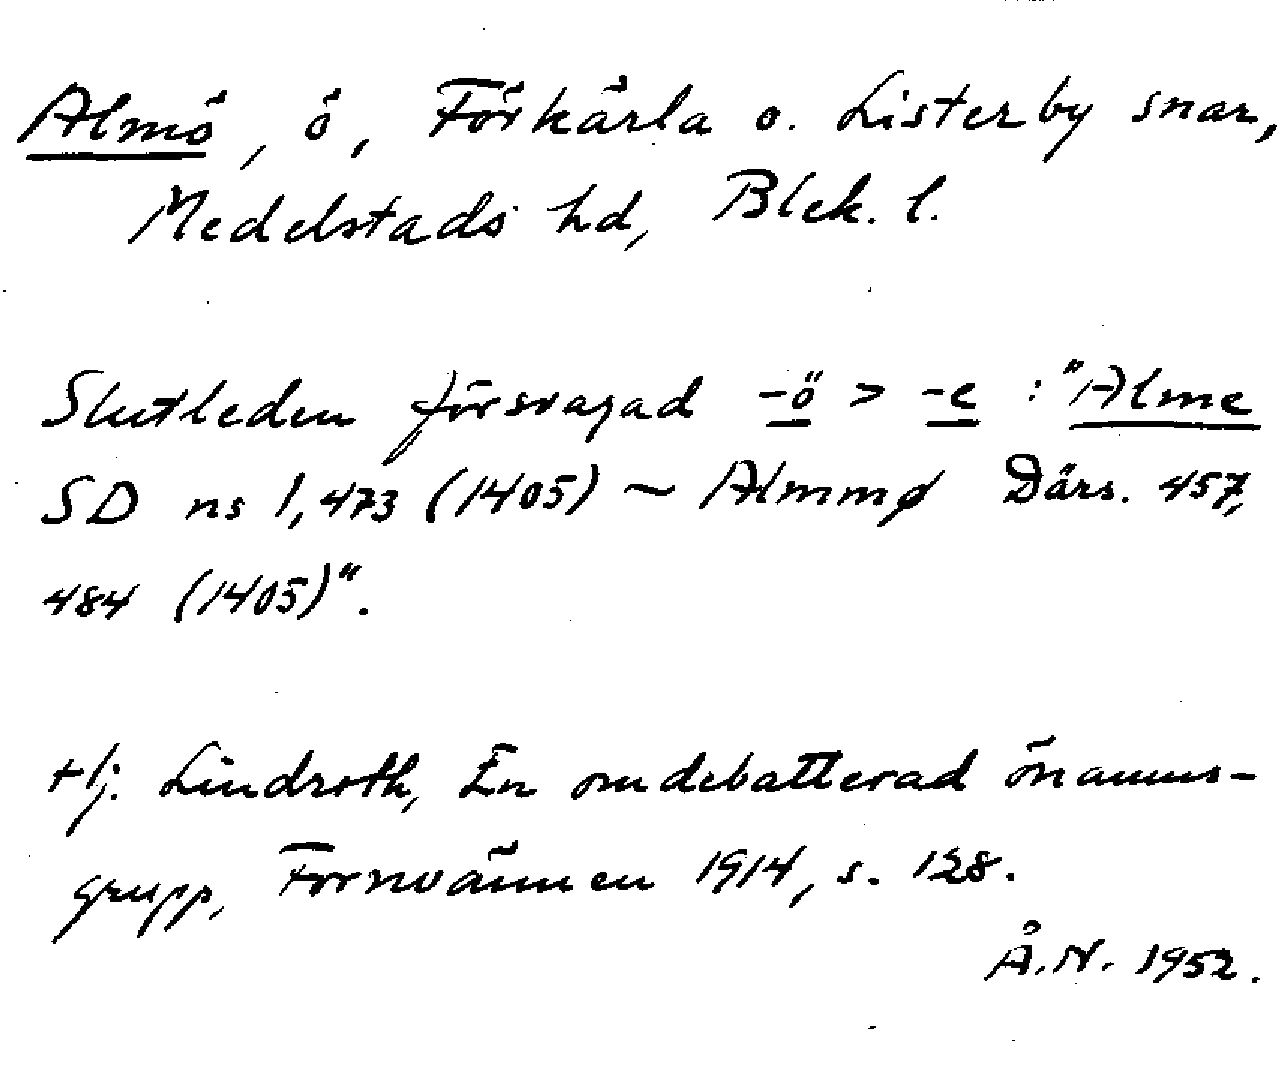 Almö, ö, Förkärla o. Listerby snar,
Medelstads hd, Blek. l.
Slutleden försvagad -ö > -e : "Alme
SD ns 1,473 (1405) ~ Almmø Därs. 457,
484 (1405)".
Hj. Lindroth, En omdebatterad önamns-
grupp, Fornvännen 1914, s. 128.
Å.N. 1952.